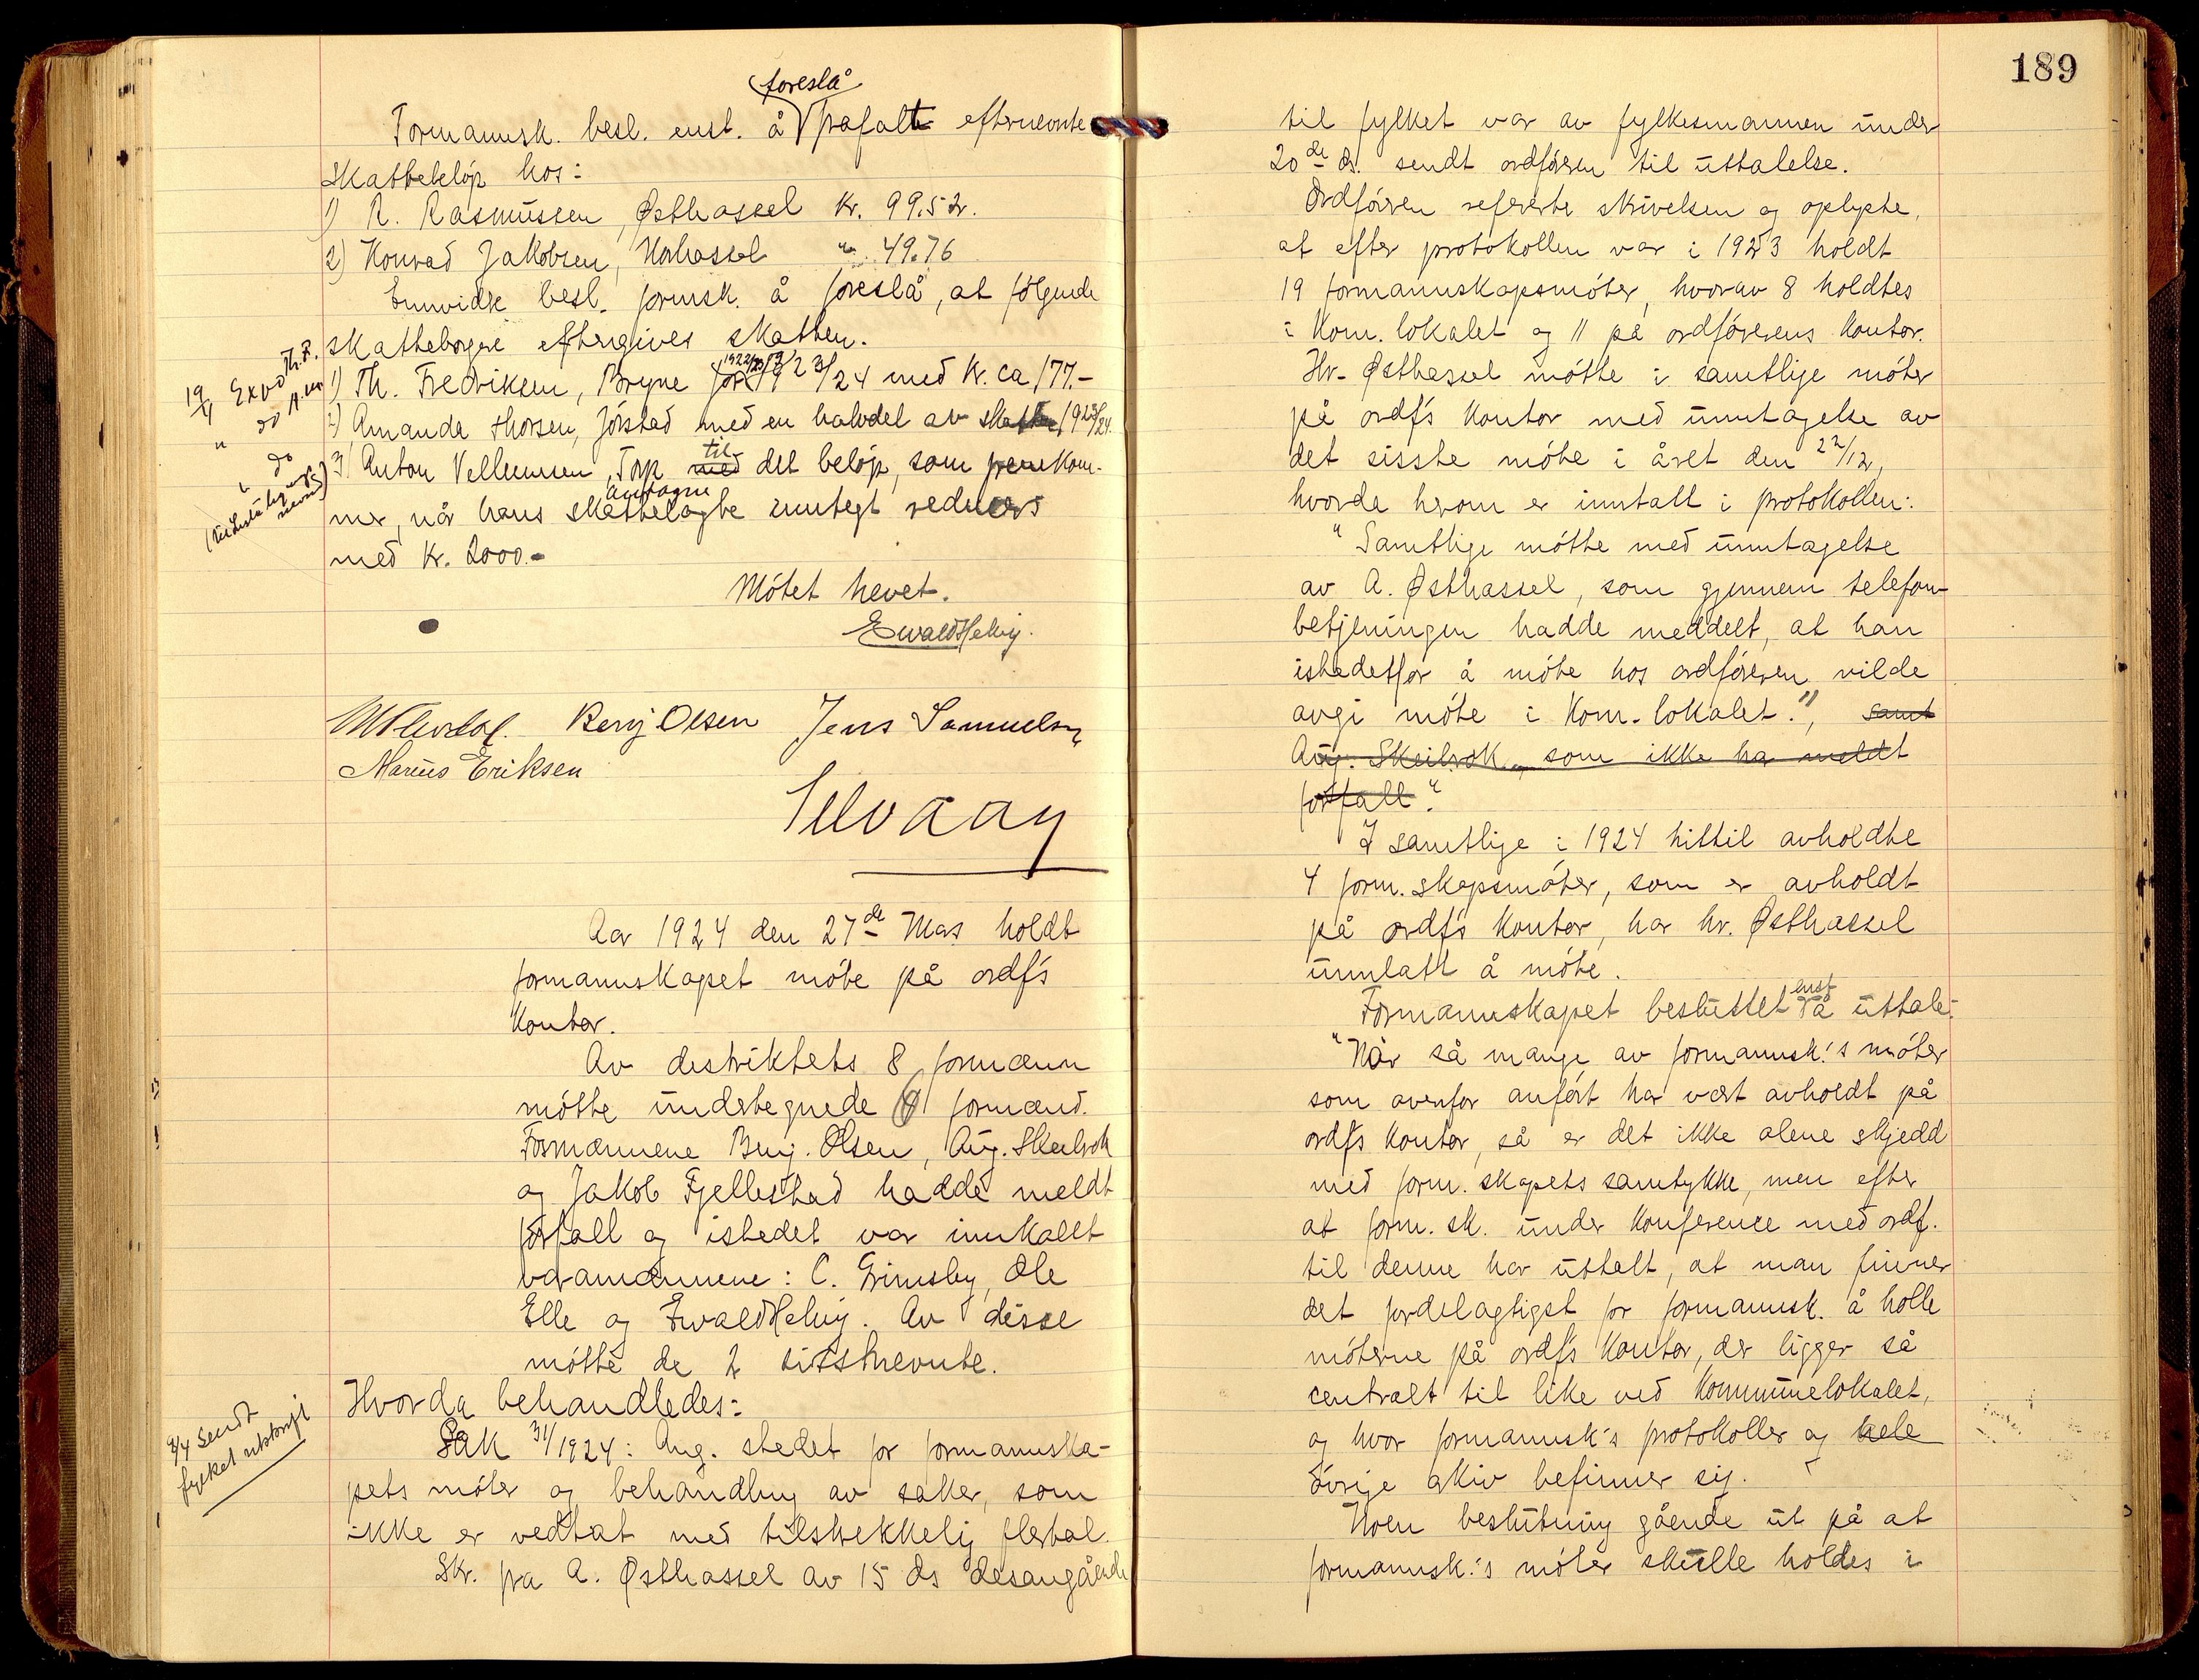 foreslå
Formannsk. besl. enst. å frafalle efternevnte
skattebeløp hos:
1) R. Rasmussen, Østhassel Kr. 99.52.
2) Konrad Jakobsen, " 49.76
Envidre besl. formsk. å foreslå, at følgende
skatteborgere eftergives skatten.
1) Th. Fredriksen, Bryne for 1923/24 med Kr. ca 177.-
2) Amanda Thorsen, Jørstad med en halvdel av skatten 1923/24.
til
3) Anton Vellemsen, Torp med det beløp, som fremkom-
antagne
mer, når hans skattelagte inntegt redusers
med Kr. 2000.-
19/4 Exp Th. F.
" do A.
" do
Møtet hevet.
Ewald Helvig.
Benj Olsen Jens Samuelsen
Marius Eriksen
Selvaag
Aar 1924 den 27de Mars holdt
formannskapet møte på ordf's
Kontor.
Av destriktets 8 formænn
møtte undertegnede formænd.
Formænnene Benj. Olsen, Aug. Skeibrok
og Jakob Fjellestad hadde meldt
forfall og istedet var innkallt
varamænnene: C. Grimsby, Ole
Elle og Ewald Helvig. Av disse
møtte de 2 sisstnevnte.
Hvorda behandledes:
Sak 31/1924: Ang. stedet for formannska-
pets møter og behandling av saker, som
ikke er vedtat med tilstrekkelig flertal.
Skr. fra A. Østhassel av 15 ds desangående
9/4 sendt
fylket utskrift
189
til fylket var av fylkesmannen under
20de ds. sendt ordføren til uttalelse.
Ordføren refererte skrivelsen og oplyste,
at efter protokollen var i 1923 holdt
19 formannskapsmøter, hvorav 8 holdtes
i Kom. lokalet og 11 på ordførerens Kontor.
Hr. Østhassel møtte i samtlige møter
på ordf's Kontor med unntagelse av
det sisste møte i året den 22/12,
hvorde herom er inntatt i protokollen:
"Samtlige møtte med unntagelse
av A. Østhassel, som gjennem telefon-
betjeningen hadde meddelt, at han
istedetfor å møte hos ordføreren vilde
avgi møte i Kom. lokalet.", samt
Aug. Skeibrok, som ikke ha meldt
forfall."
I samtlige i 1924 hittil avholdte
4 form.skapsmøter, som er avholdt
på ordf's Kontor, har hr. Østhassel
unnlatt å møte.
enst
Formannskapet besluttet å uttale:
"Når så mange av formannsk.'s møter
som ovenfor anført har vært avholdt på
ordf's Kontor, så er det ikke alene skjedd
med form.skapets samtykke, men efter
at form.sk. under Konference med ordf.
til denne har uttalt, at man finner
det fordelagtigst for formannsk. å holle
møterne på ordf's Kontor, der ligger så
centralt til like ved Kommunelokalet,
og hvor formannsk's protokoller og hele
øvrige arkiv befinner sig.
Noen beslutning gående ut på at
formannsk.'s møter skulle holdes i